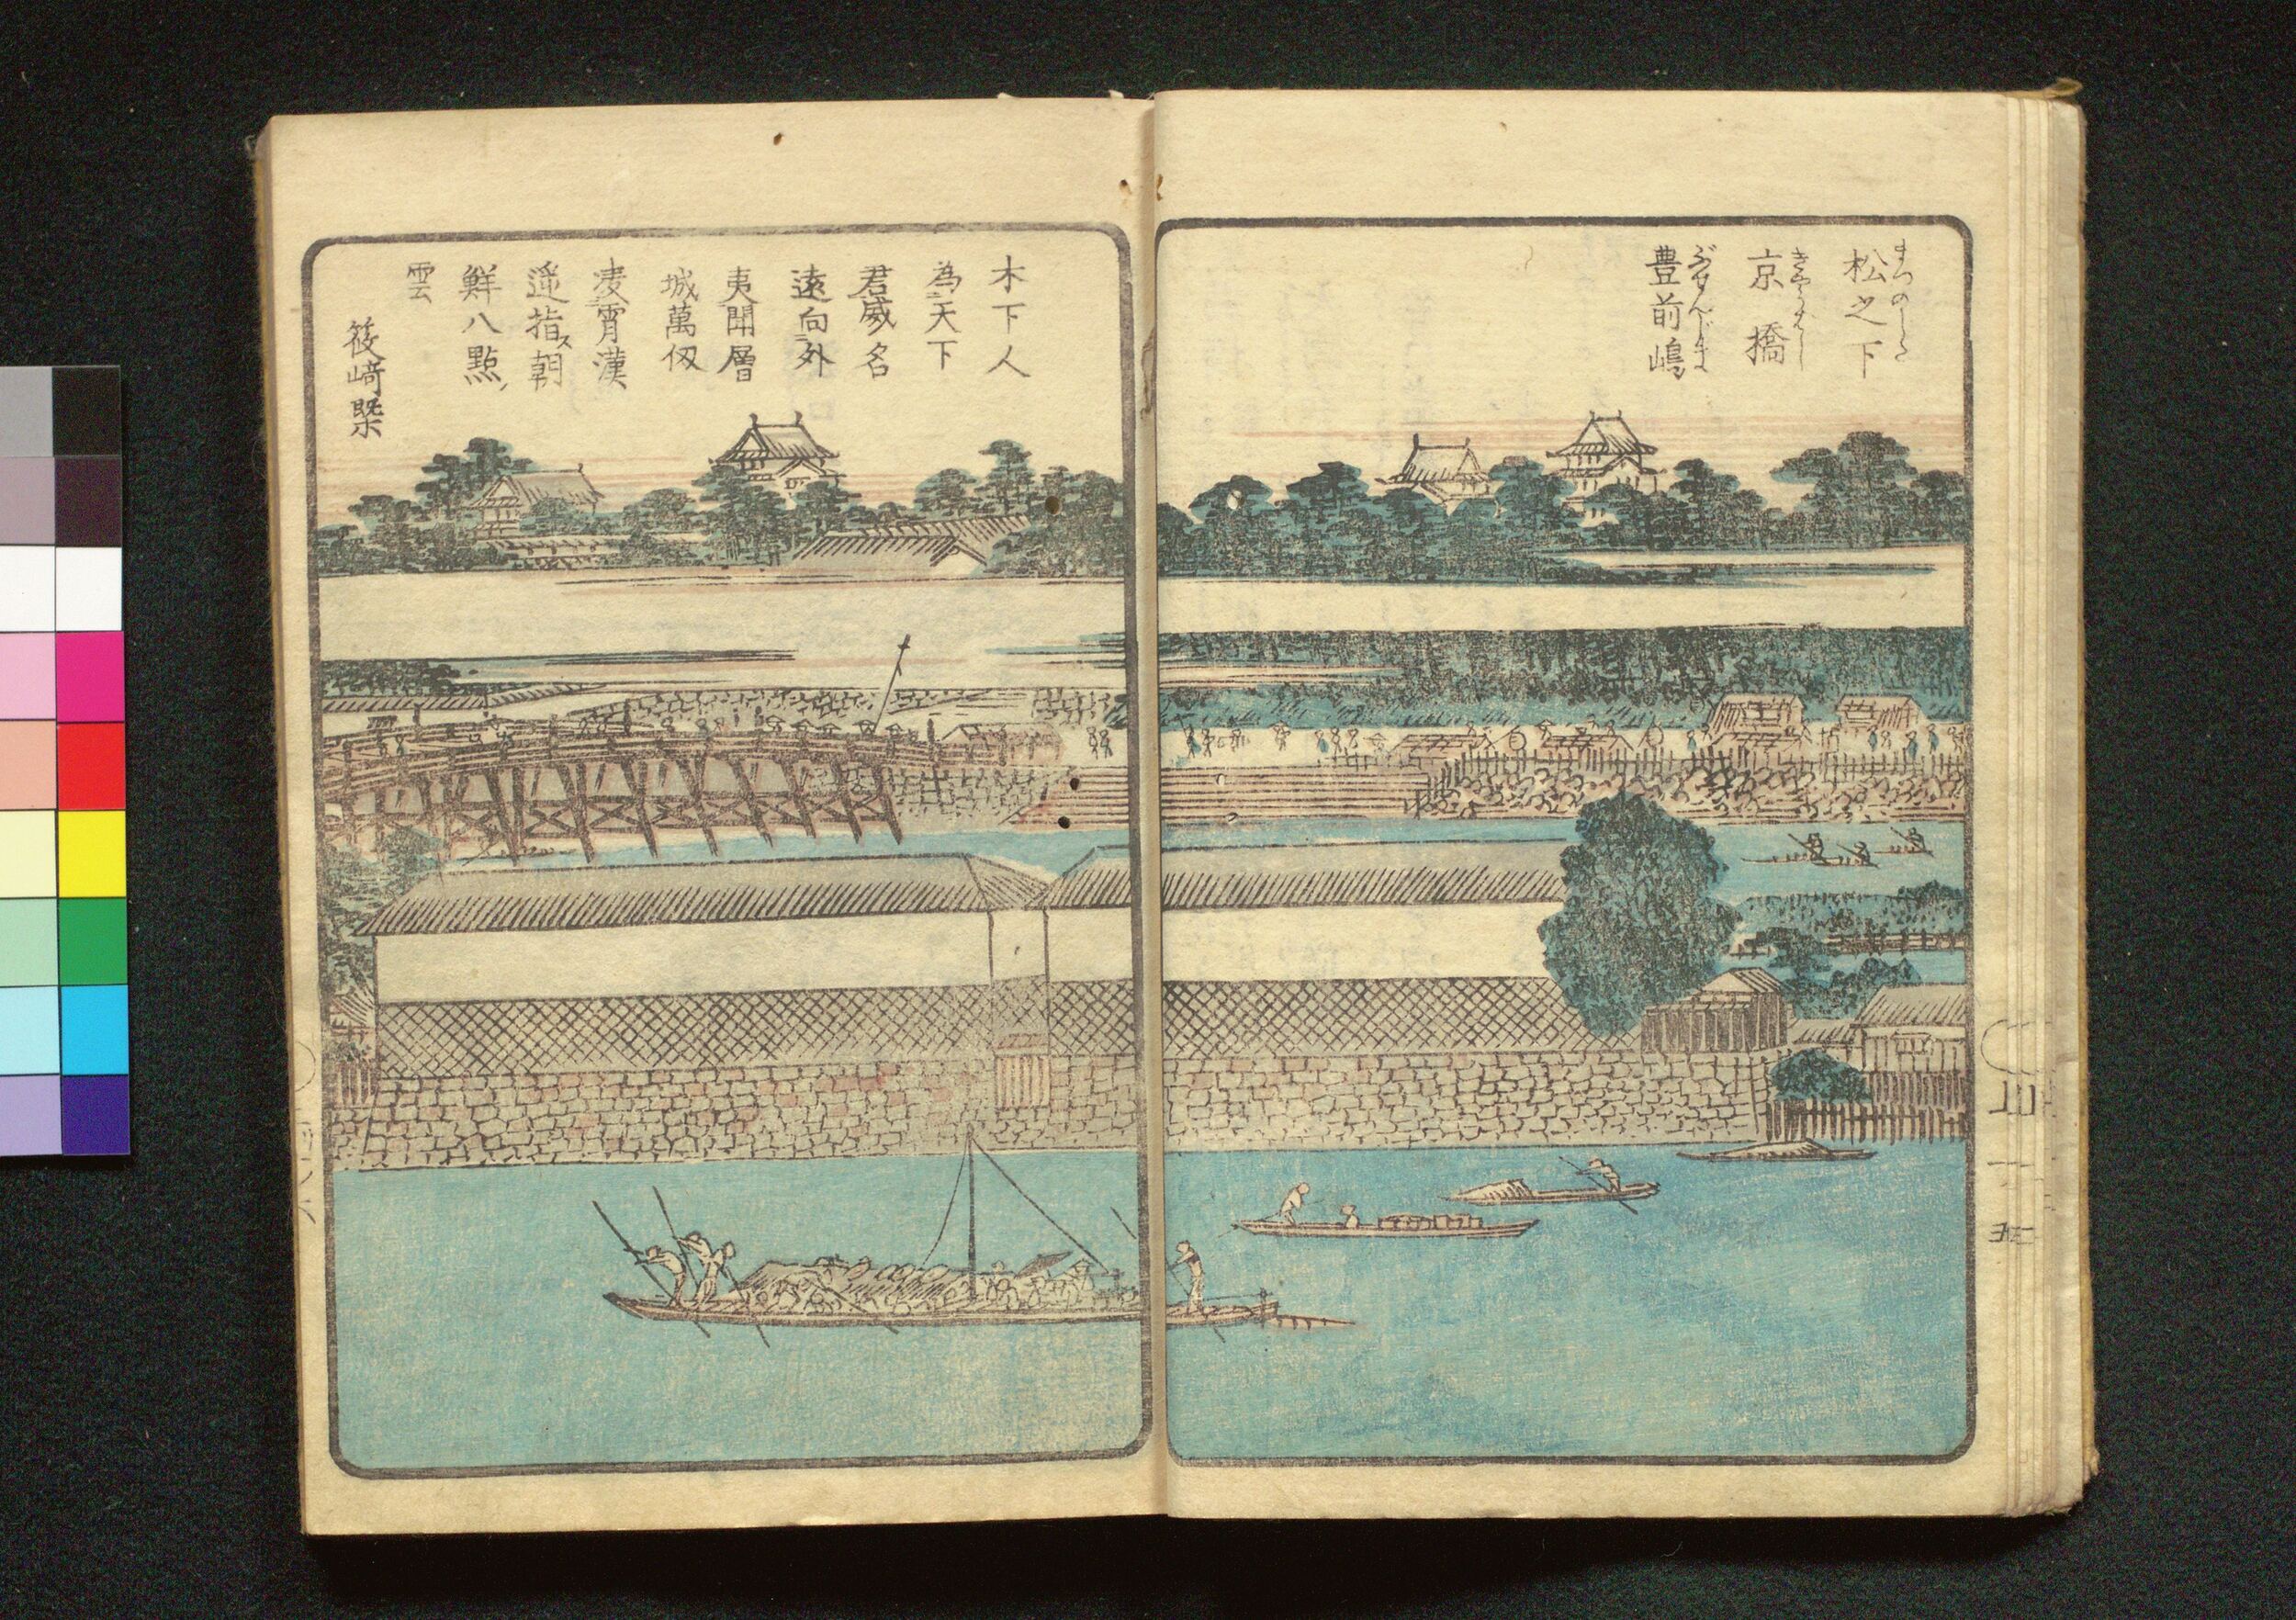 まつのした
松之下
きやうばし
京橋
ぶぜんじま
豊前嶋
木下人
為ニ天下
君威名
遠向ニ外
夷聞層
城萬仭
凌霄漢
遥指ス朝
鮮八點ノ
雲
筱﨑槩